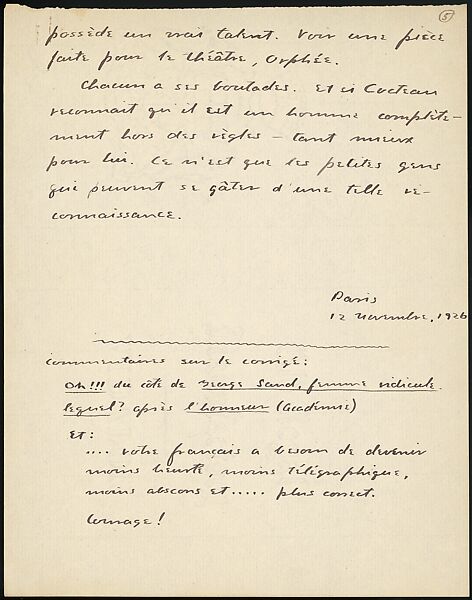 5
possède un vrai talent. Voir une pièce
faite pour le théâtre, Orphée.
Chacun a ses boutades. Et si Cocteau
reconnait qu'il est un homme complète-
ment hors des règles – tant mieux
pour lui. Ce n'est que les petites gens
qui peuvent se gâter d'une telle re-
connaissance.
Paris
12 Novembre, 1926
Commentaires sur le corrigé:
Oh!!! du côté de George Sand, femme ridicule.
lequel? après l'honneur (Académie)
Et:
.... votre français a besoin de devenir
moins heurté, moins télégraphique,
moins abscons et ..... plus correct.
Courage!